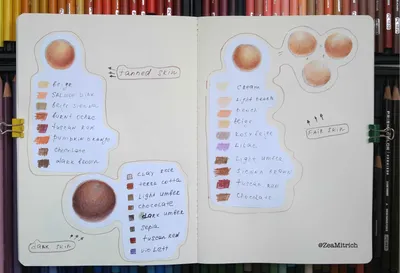 Beige
Salmon pink
Burnt ochre
Tuscan red
Pumpkin orange
Chocolate
Dark brown
Tanned skin
Clay rose
terra cotta
Light umber
chocolate
Dark umber
Sepia
tuscan red
violett
Dark skin
Cream
Light peach
Peach
Light umber
Tuscan red
Chocolate
Fair skin
@ZeaMitrich